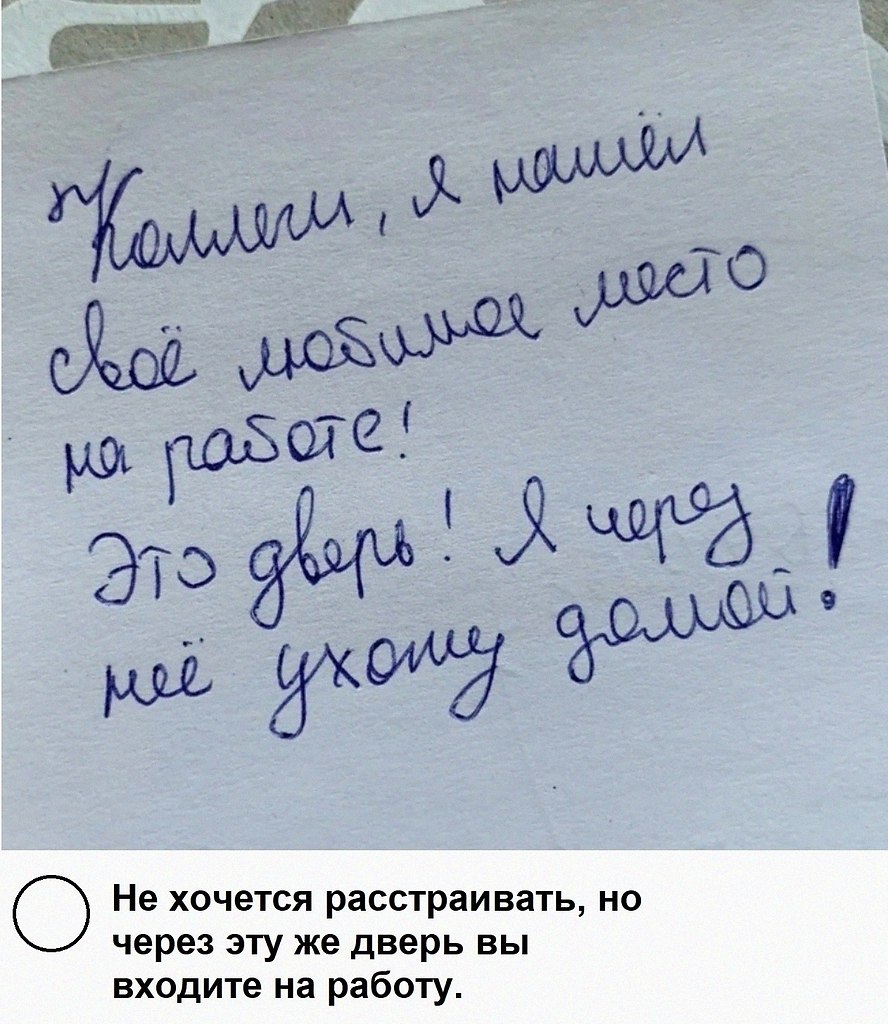 Коллеги, я нашёл
своё любимое место
на работе!
Это дверь! Я через
неё ухожу домой!
Не хочется расстраивать, но
через эту же дверь вы
входите на работу.